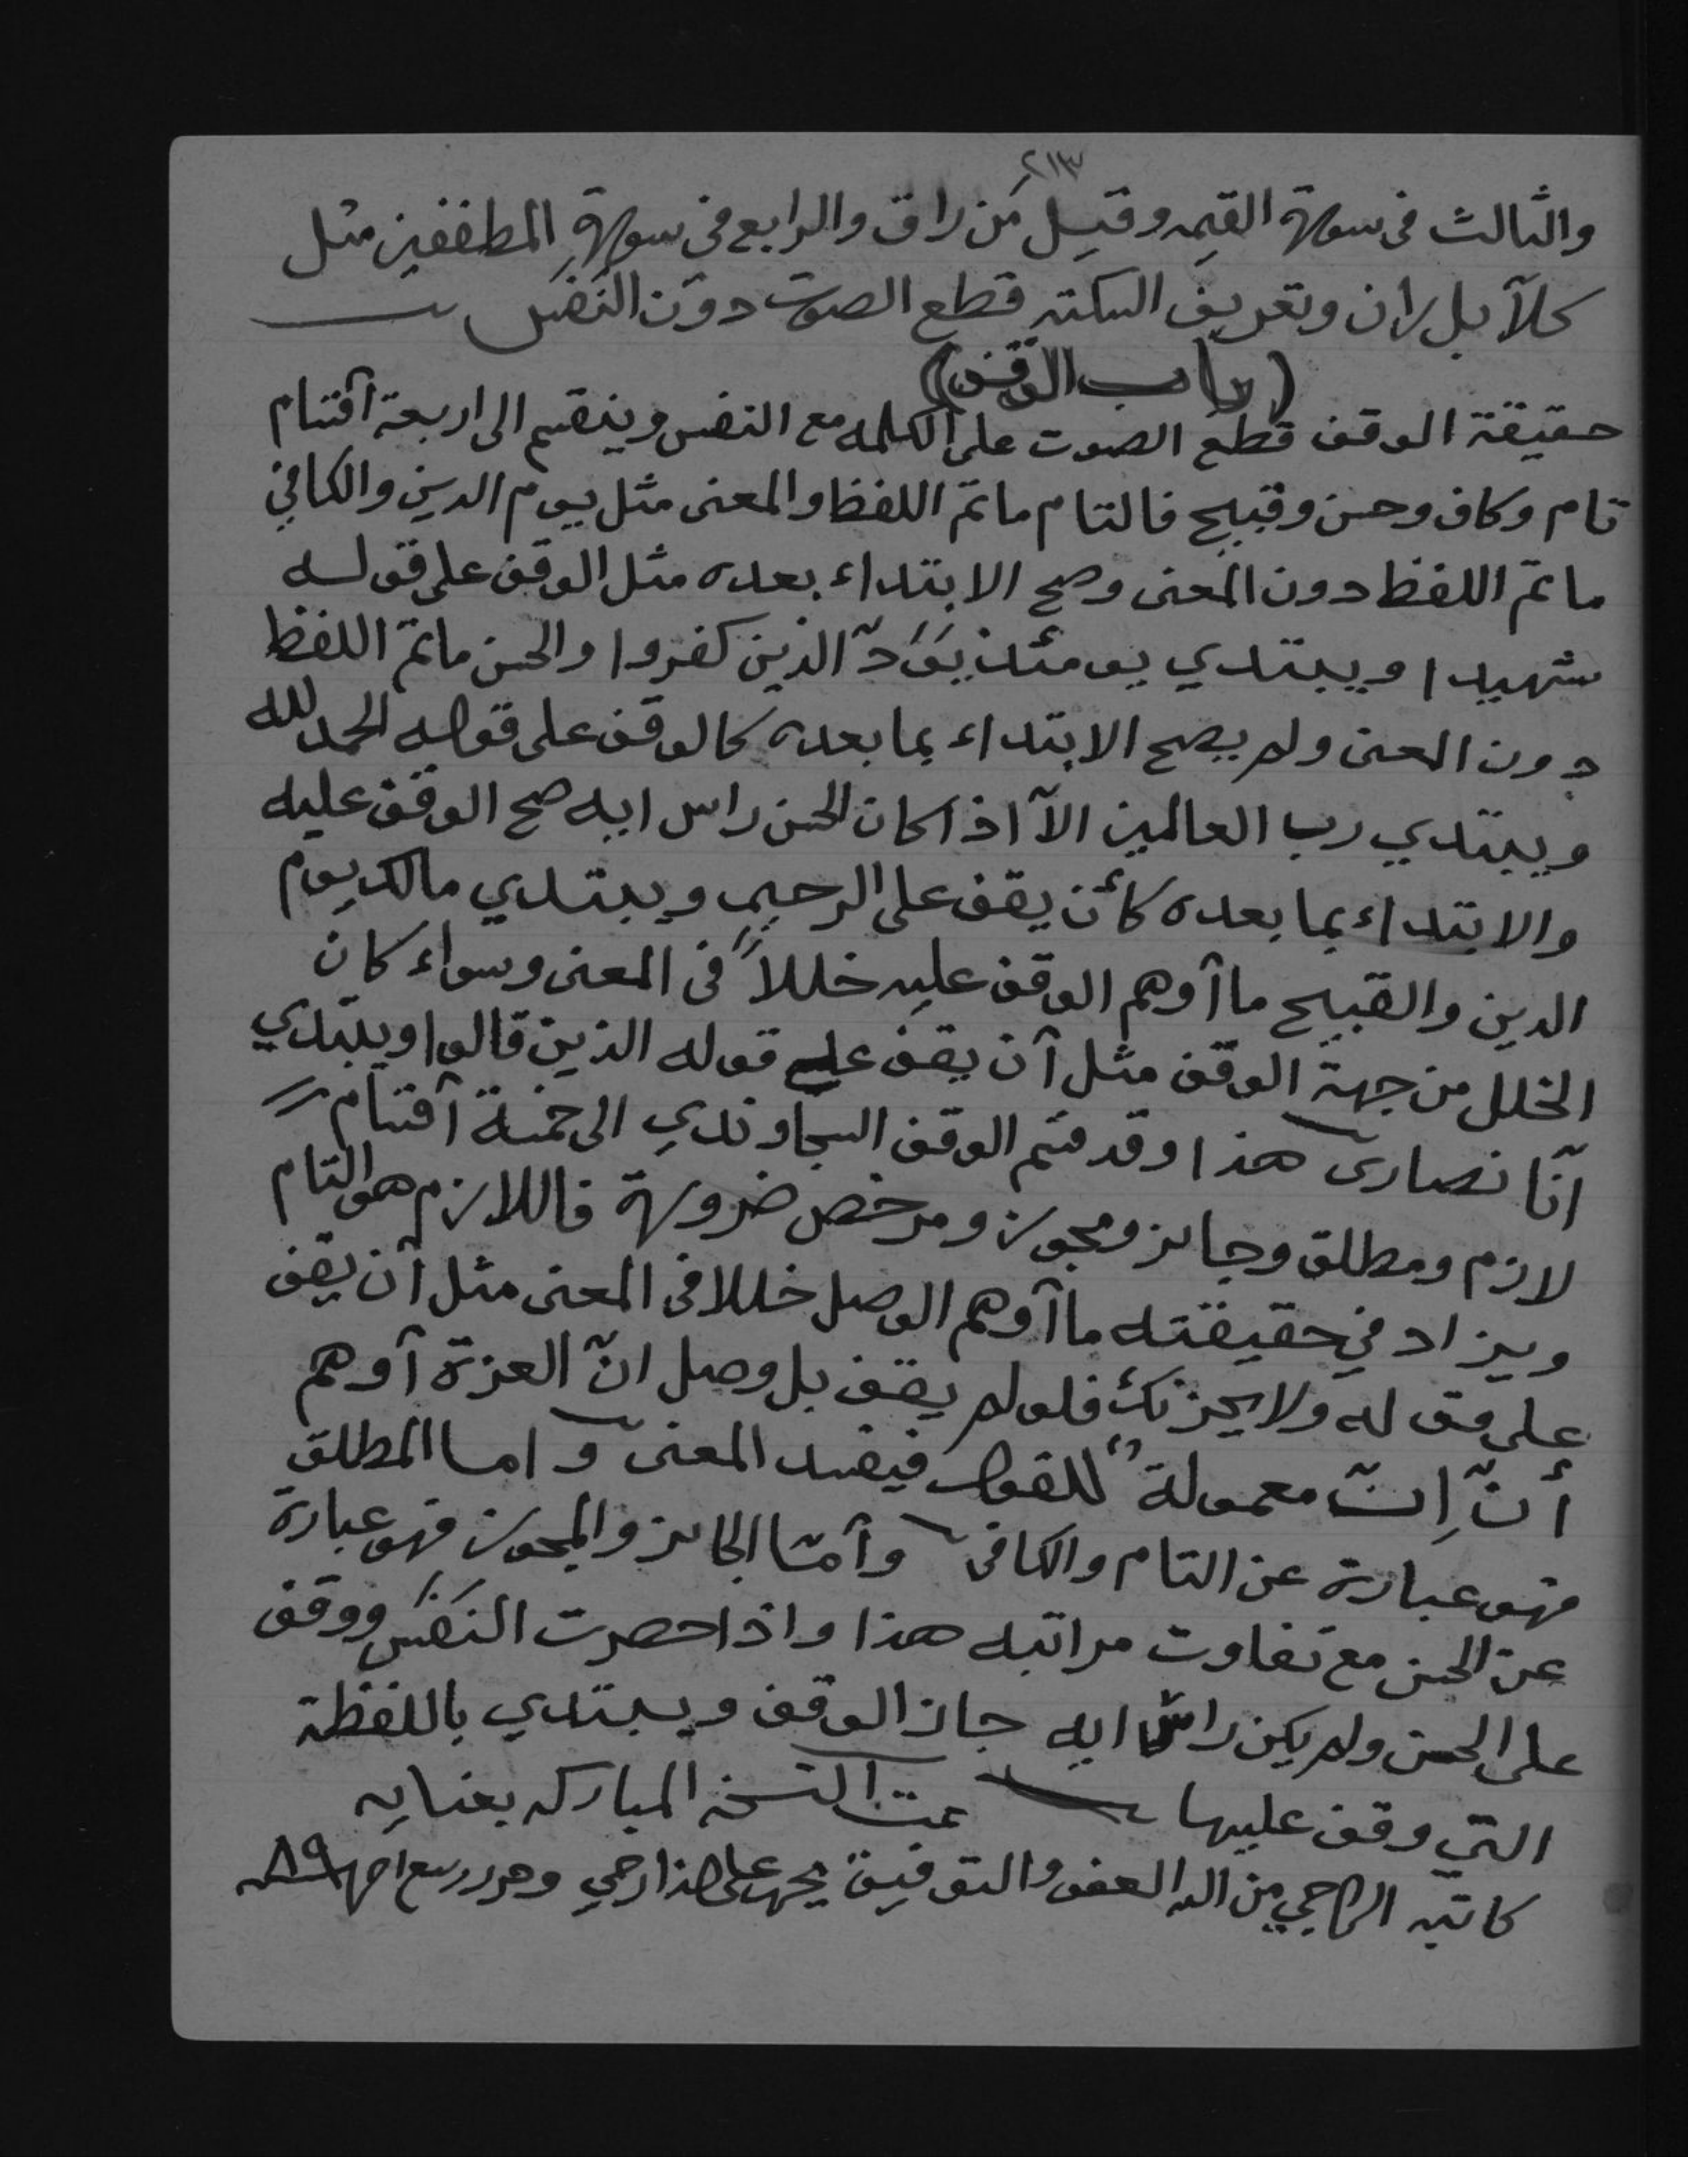 ٢١٣
والثالث فى سورة القيمه وقيل مَن راق والرابع فى سورةِ المطففين مثل
كلآ بل ران وتعريف السكته قطع الصوت دون النفَس
(باب الوقف)
حقيقة الوقف قطع الصوت على الكلمه مع النفس وينقسم الى اربعة آقسام
تام وكاف وحسن وقبيح فالتام ماتمّ اللفظ والمعنى مثل يوم الدين والكافي
ماتمّ اللفظ دون المعنى وصح الابتداء بعده مثل الوقف على قوله
شهيدا ويبتدي يومئذ يَوَدّ الذين كفروا والحسن ماتمّ اللفظ
دون المعنى ولم يصح الابتداء بما بعده كالوقف على قوله الحمد لله
ويبتدي رب العالمين الآ اذا كان الحسن راس ايه صح الوقف عليه
والابتداء بما بعده كأن يقف على الرحيم ويبتدي مالك يوم
الدين والقبيح ما آوهم الوقف عليه خللاً فى المعنى وسواء كان
الخلل من جهة الوقف مثل آن يقف على قوله الذين قالوا ويبتدي
آنّا نصارى هذا وقد قسم الوقف السجاوندي الى خمسة آقسام
لازم ومطلق وجايز ومجوز ومرخص ضرورة فاللازم هو التام
ويزاد في حقيقته ما آوهم الوصل خللا فى المعنى مثل آن يقف
على قوله ولا يحزنك فلو لم يقف بل وصل انّ العزة آوهم
أنّ اِنّ معمولةً للقول فيفسد المعنى و اما المطلق
فهو عبارة عن التام والكافى وآمّا الجايز والمجوز فهو عبارة
عن الحسن مع تفاوت مراتبه هذا واذا حصرت النفَس ووقف
على الحسن ولم يكن راس ايه جاز الوقف ويبتدي باللفظة
التي وقف عليها تمت النسخه المباركه بعنايه
كاتبه الراجي من الله العفو والتوفيق